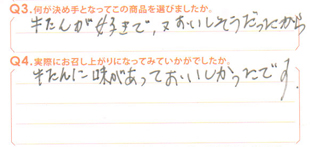 Q3.何が決め手となってこの商品を選びましたか。
牛たんが好きで,又おいしそうだったから
Q4.実際にお召し上がりになってみていかがでしたか。
牛たんに味があっておいしかったです。